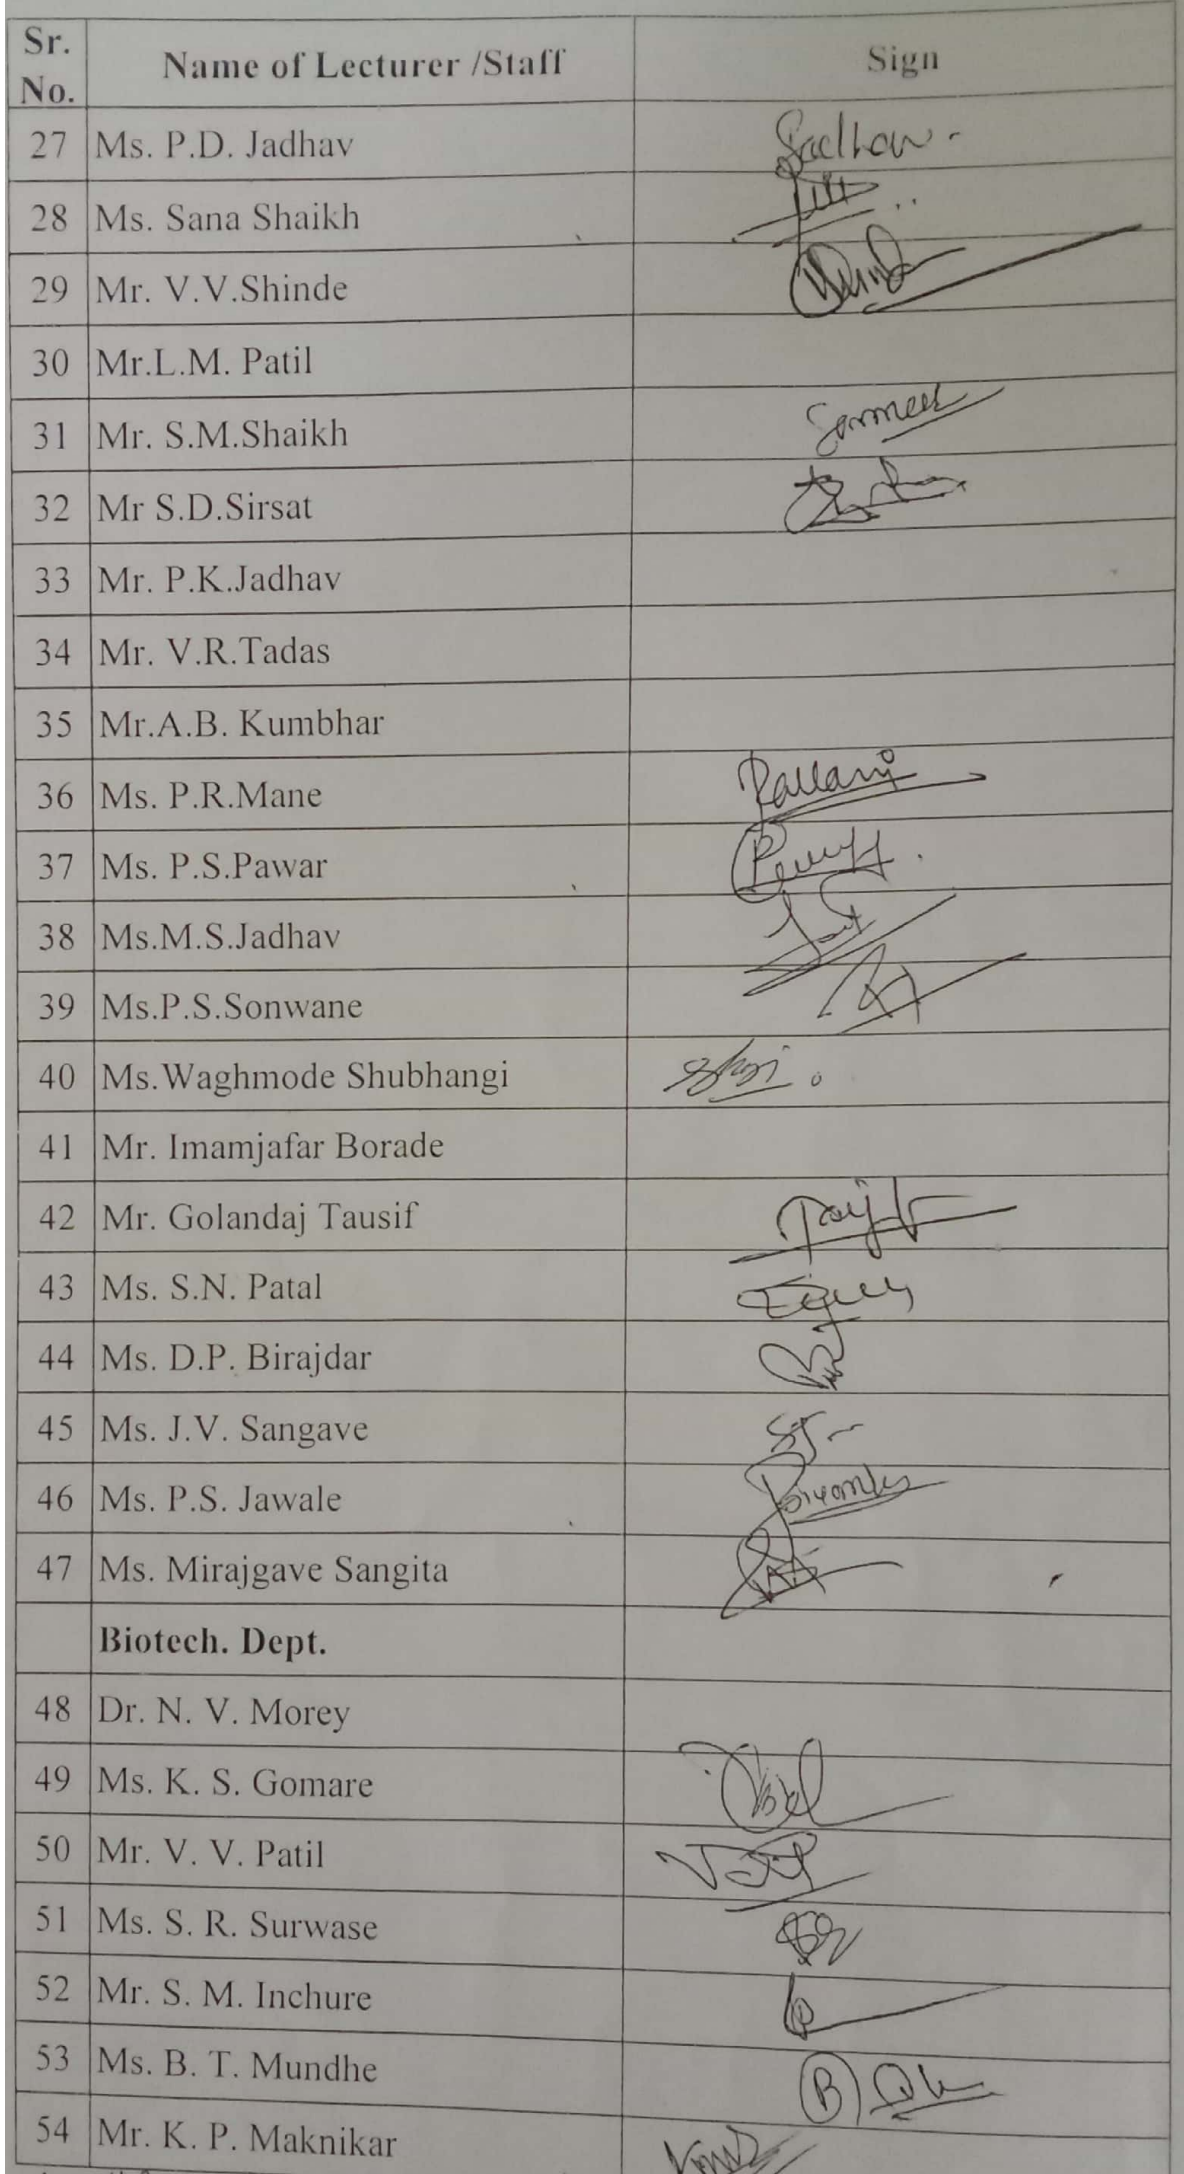 Sr. No. Name of Lecturer /Staff Sign
27 Ms. P.D. Jadhav Jadhav
28 Ms. Sana Shaikh
29 Mr. V.V.Shinde
30 Mr.L.M. Patil
31 Mr. S.M.Shaikh
32 Mr S.D.Sirsat
33 Mr. P.K.Jadhav
34 Mr. V.R.Tadas
35 Mr.A.B. Kumbhar
36 Ms. P.R.Mane Pallavi
37 Ms. P.S.Pawar
38 Ms.M.S.Jadhav
39 Ms.P.S.Sonwane
40 Ms.Waghmode Shubhangi
41 Mr. Imamjafar Borade
42 Mr. Golandaj Tausif
43 Ms. S.N. Patal
44 Ms. D.P. Birajdar
45 Ms. J.V. Sangave
46 Ms. P.S. Jawale
47 Ms. Mirajgave Sangita
Biotech. Dept.
48 Dr. N. V. Morey
49 Ms. K. S. Gomare
50 Mr. V. V. Patil
51 Ms. S. R. Surwase
52 Mr. S. M. Inchure
53 Ms. B. T. Mundhe
54 Mr. K. P. Maknikar